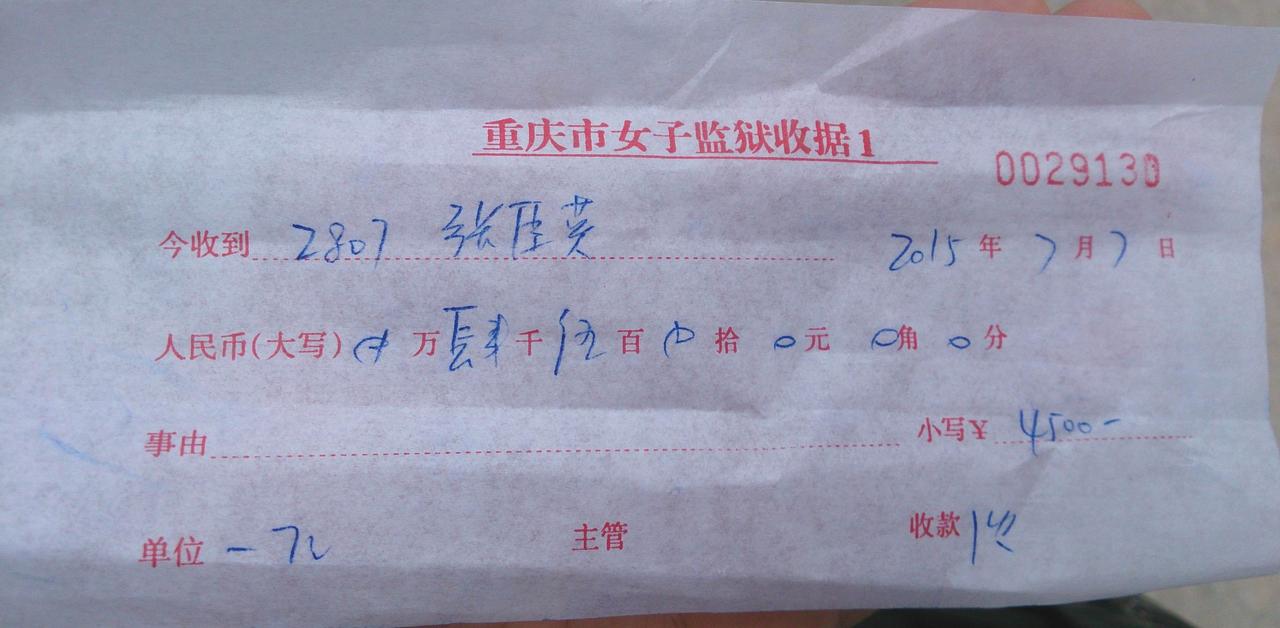 重庆市女子监狱收据1
0029130
今收到 2807 张臣英 2015 年 7 月 7 日
人民币(大写) 0 万 肆 千 伍 百 0 拾 0 元 0 角 0 分
事由 小写¥ 4500-
单位 主管 收款